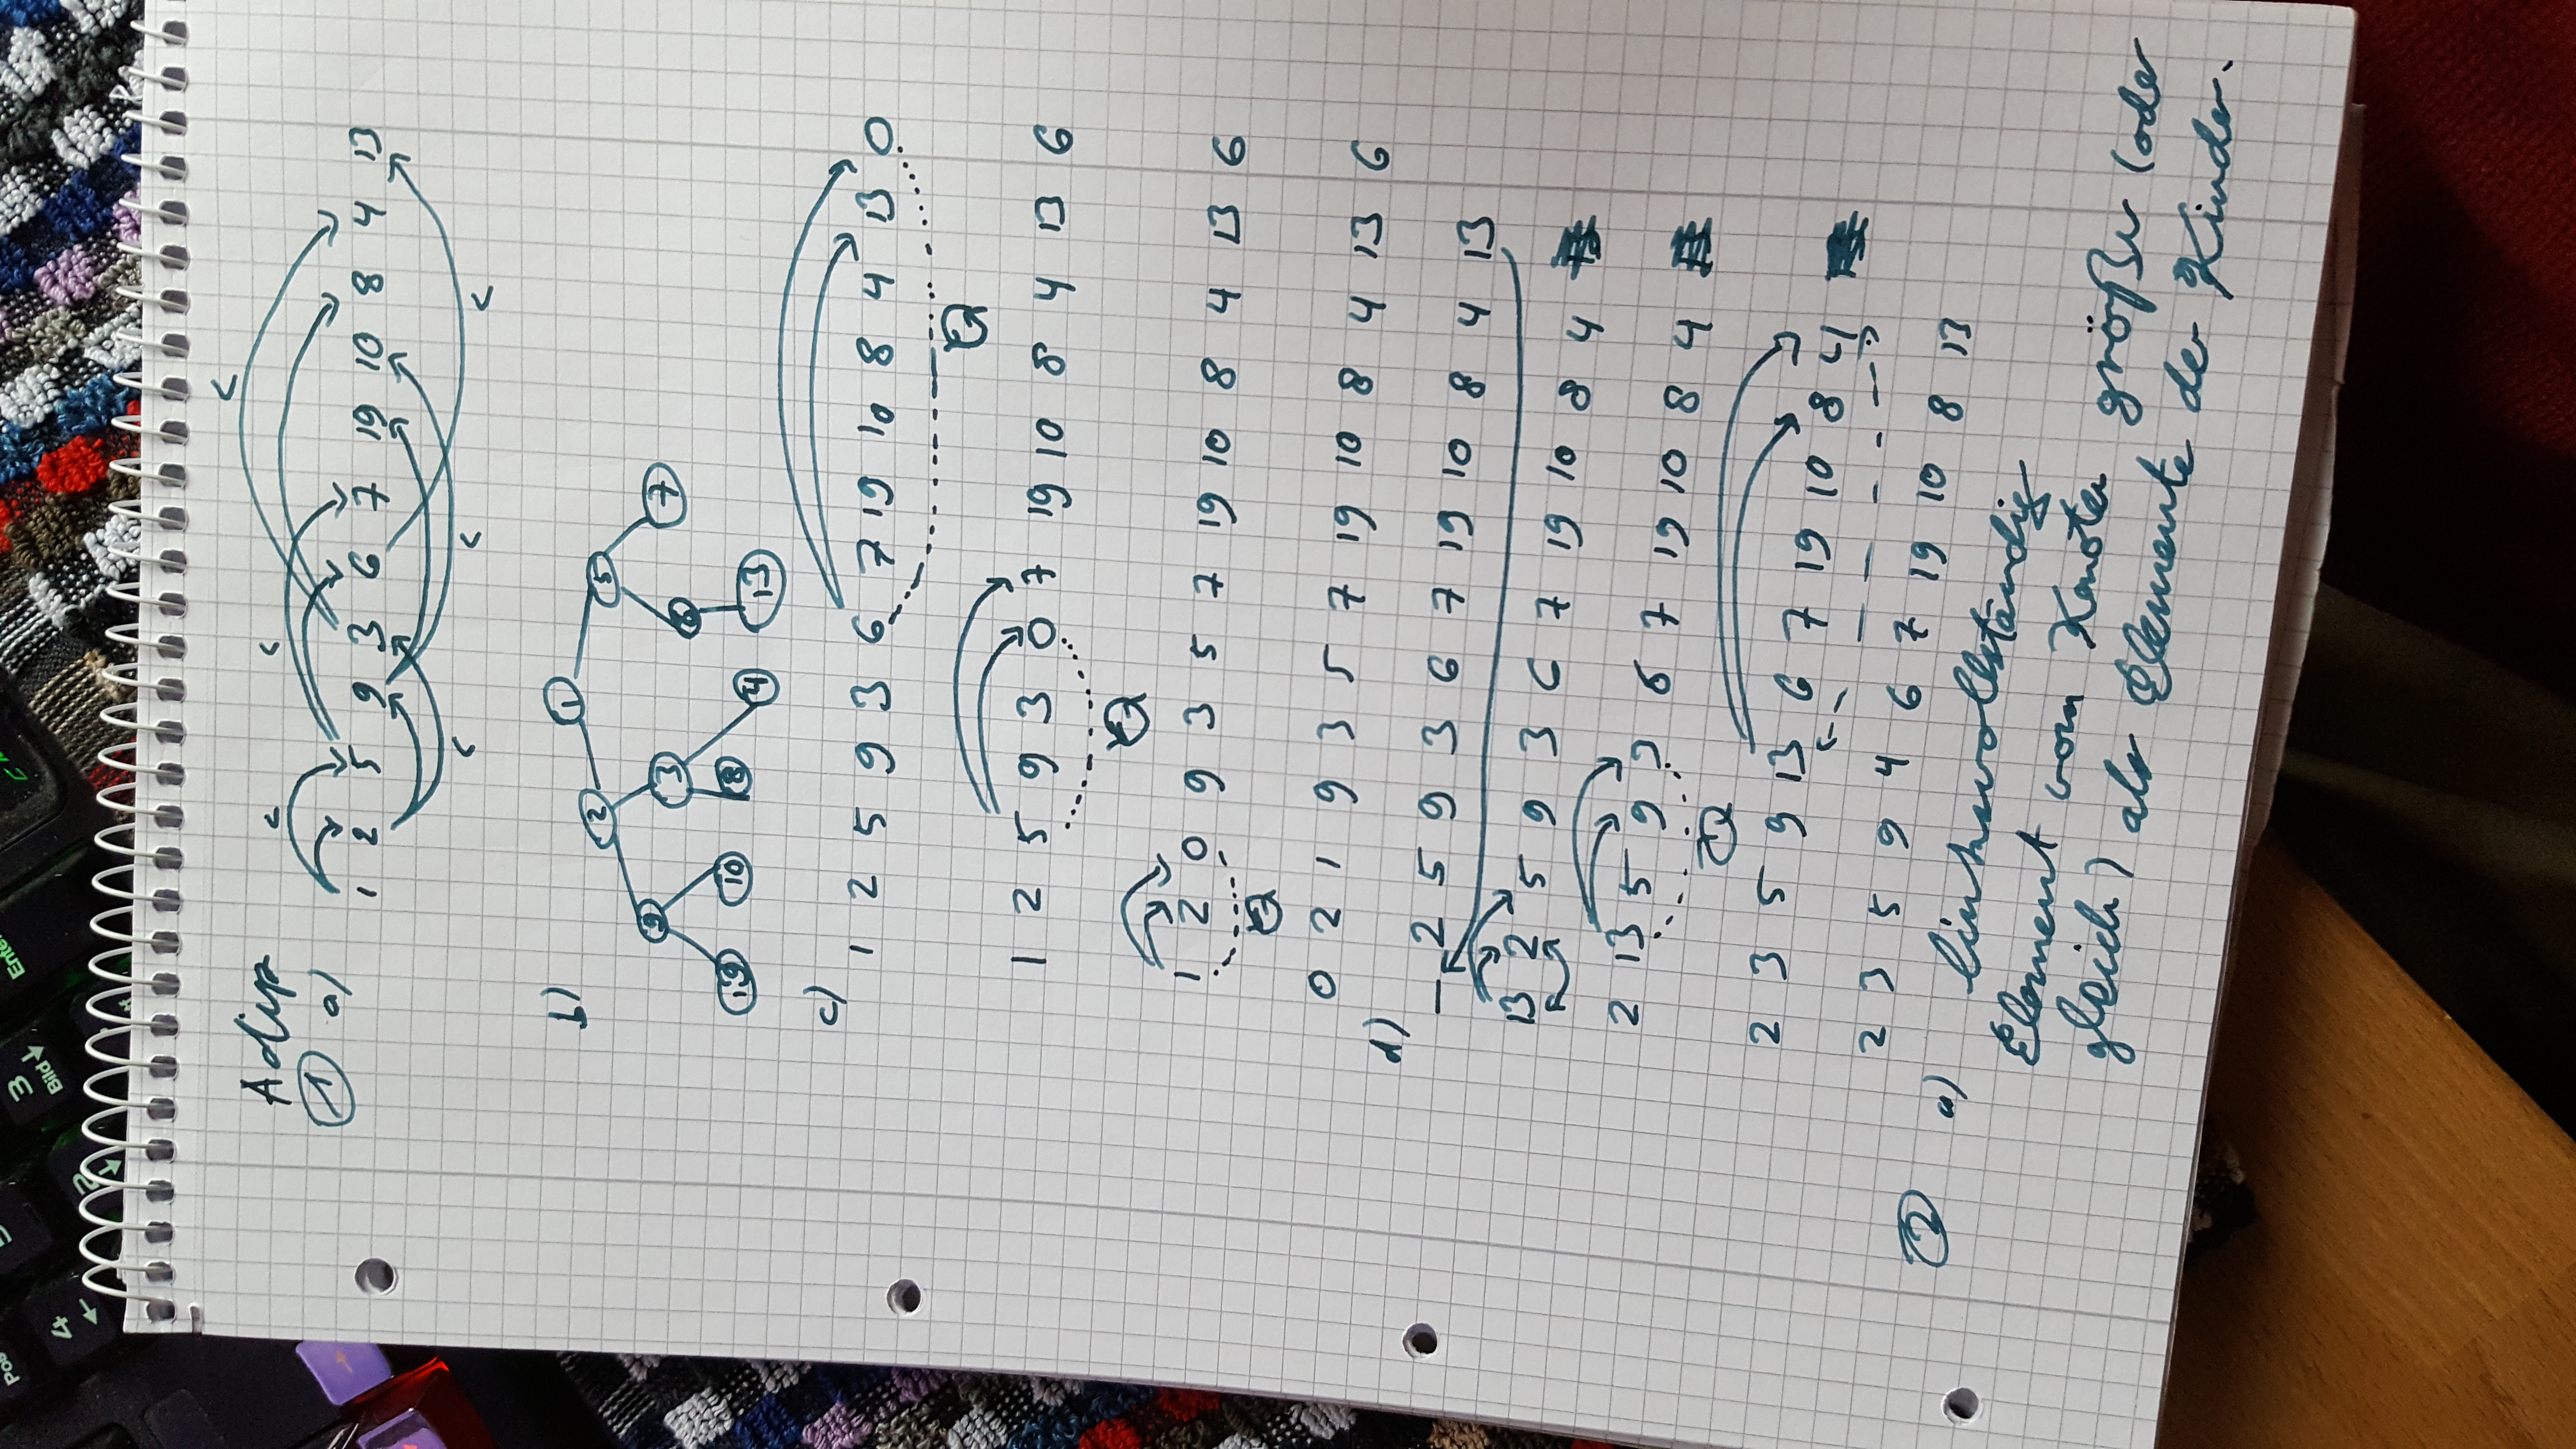 Pos
4
3
Bild
Ente
Adip
1 a)
< < <
1 2 5 9 3 6 7 19 10 8 4 13
< < <
b)
1
2 5
9 3 6 7
19 10 8 4 13
c)
1 2 5 9 3 6 7 19 10 8 4 13 0
1 2 5 9 3 0 7 19 10 8 4 13 6
1 2 0 9 3 5 7 19 10 8 4 13 6
0 2 1 9 3 5 7 19 10 8 4 13 6
d)
– 2 5 9 3 6 7 19 10 8 4 13
13 2 5 9 3 6 7 19 10 8 4
2 13 5 9 3 6 7 19 10 8 4
2 3 5 9 13 6 7 19 10 8 4
2 3 5 9 4 6 7 19 10 8 13
2 a) linksvollständig
Element vom Knoten größer (oder
gleich) als Elemente der Kinder.